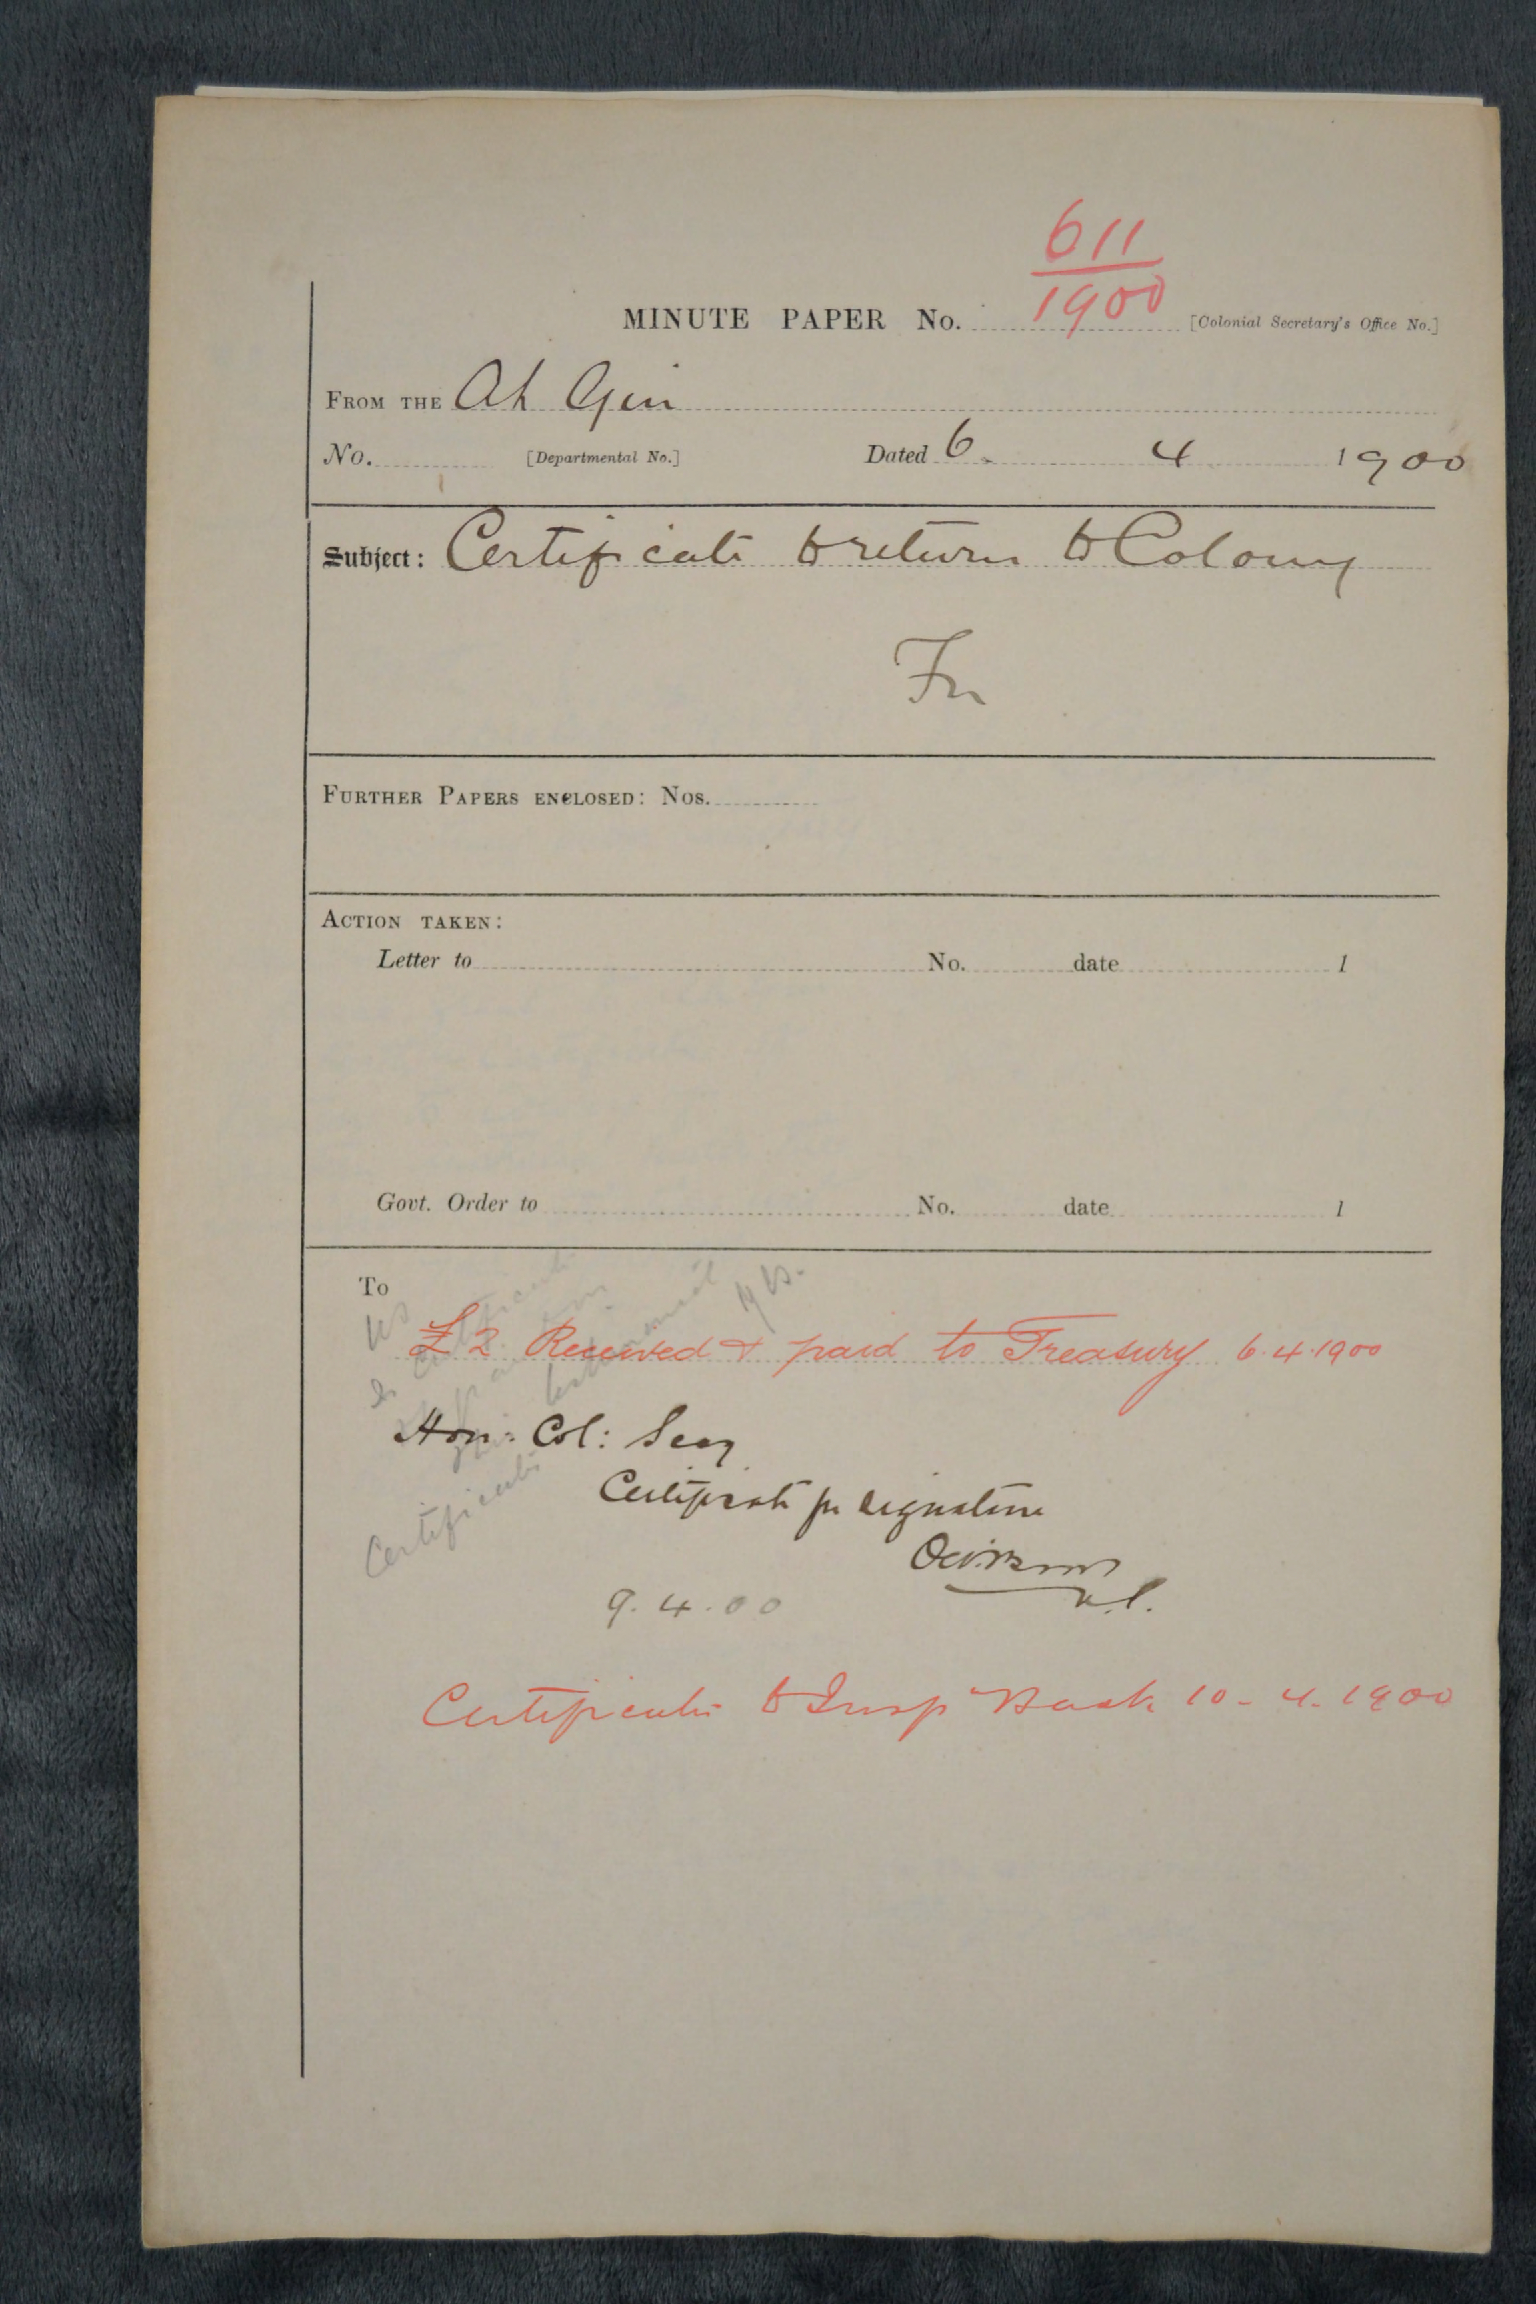 611
1900
MINUTE PAPER No. [Colonial Secretary's Office No.]
FROM THE Ah Gin
No. [Departmental No.] Dated 6. 4 1900
Subject: Certificate to return to Colony
FURTHER PAPERS ENCLOSED: Nos.
ACTION TAKEN:
Letter to No. date 1
Govt. Order to No. date 1
To
£2 Received & paid to Treasury 6.4.1900
Hon: Col: Secy
Certificate for signature
U.S.
9.4.00
Certificate to Insp 10-4-1900
US
Certificate
testimonial
yes.
Certificate